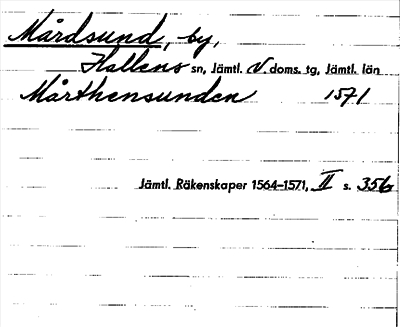 Mårdsund, by,
Hallens sn, Jämtl. V. doms. tg, Jämtl. län
Mårthensunden 1571
Jämtl. Räkenskaper 1564–1571, II s. 356